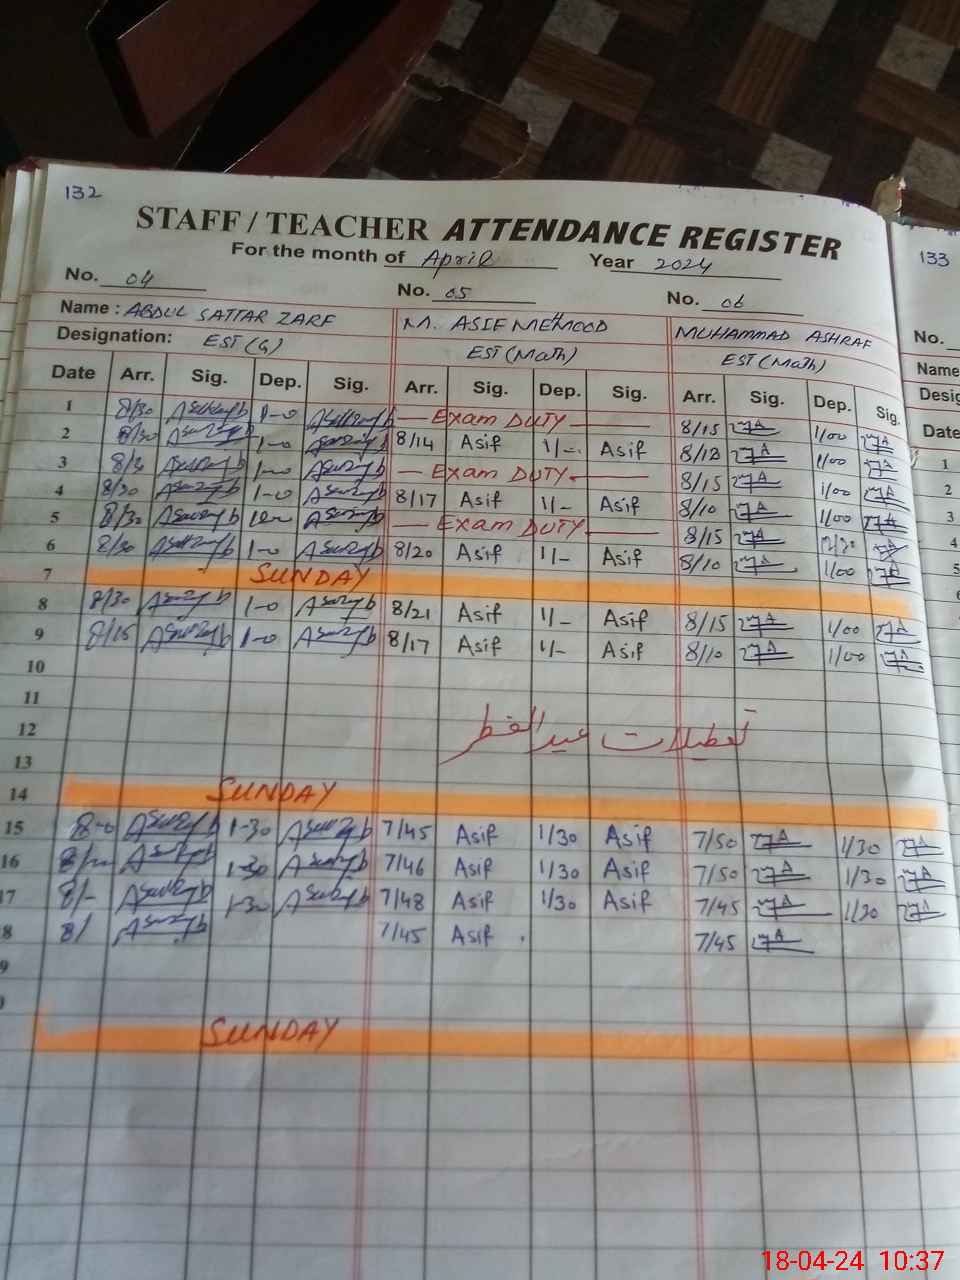 132
STAFF / TEACHER ATTENDANCE REGISTER
133
For the month of April Year 2024
No. 04 No. 05 No. 06
No.
Name : ABDUL SATTAR ZARF M. ASIF MEHMOOD MUHAMMAD ASHRAF
Name
Designation: EST (G) EST (Math) EST (Math)
Desig
Date Arr. Sig. Dep. Sig. Arr. Sig. Dep. Sig. Arr. Sig. Dep. Sig.
Date
1 8/30 1-0 — Exam DUTY — 8/15 1/00
2 8/30 1-0 8/14 Asif 1/- Asif 8/12 1/00
3 8/3 1-0 — Exam DUTY — 8/15 1/00
4 8/30 1-0 8/17 Asif 1/- Asif 8/10 1/00
5 8/30 — Exam DUTY — 8/15
6 8/30 1-0 8/20 Asif 1/- Asif 8/10 1/00
7 SUNDAY
8 8/30 1-0 8/21 Asif 1/- Asif 8/15 1/00
9 8/15 1-0 8/17 Asif 1/- Asif 8/10 1/00
10
11
12 تعطیلات عیدالفطر
13
14 SUNDAY
15 8-0 1-30 7/45 Asif 1/30 Asif 7/50 1/30
16 1-30 7/46 Asif 1/30 Asif 7/50 1/30
17 8/- 1-30 7/48 Asif 1/30 Asif 7/45 1/20
8 8/ 7/45 Asif . 7/45
9
SUNDAY
1
2
3
4
5
18-04-24 10:37